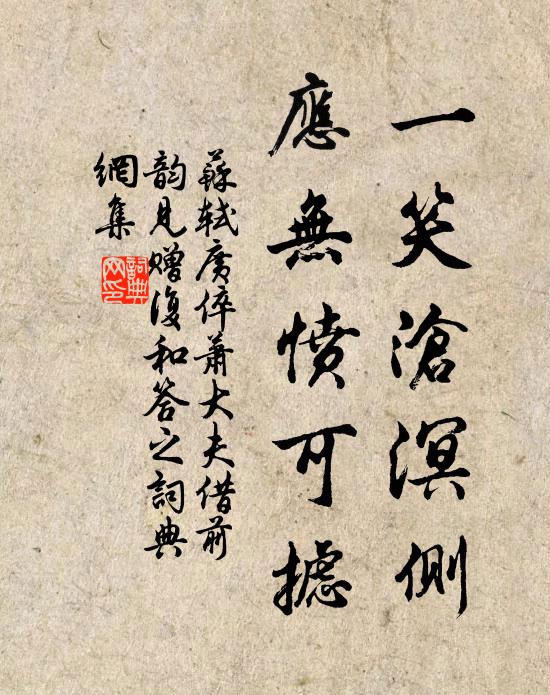 一笑滄溟側
應無憤可攄
蘇軾廣倅蕭大夫借前
韵見贈復和答之詞典
網集
詞典
网印